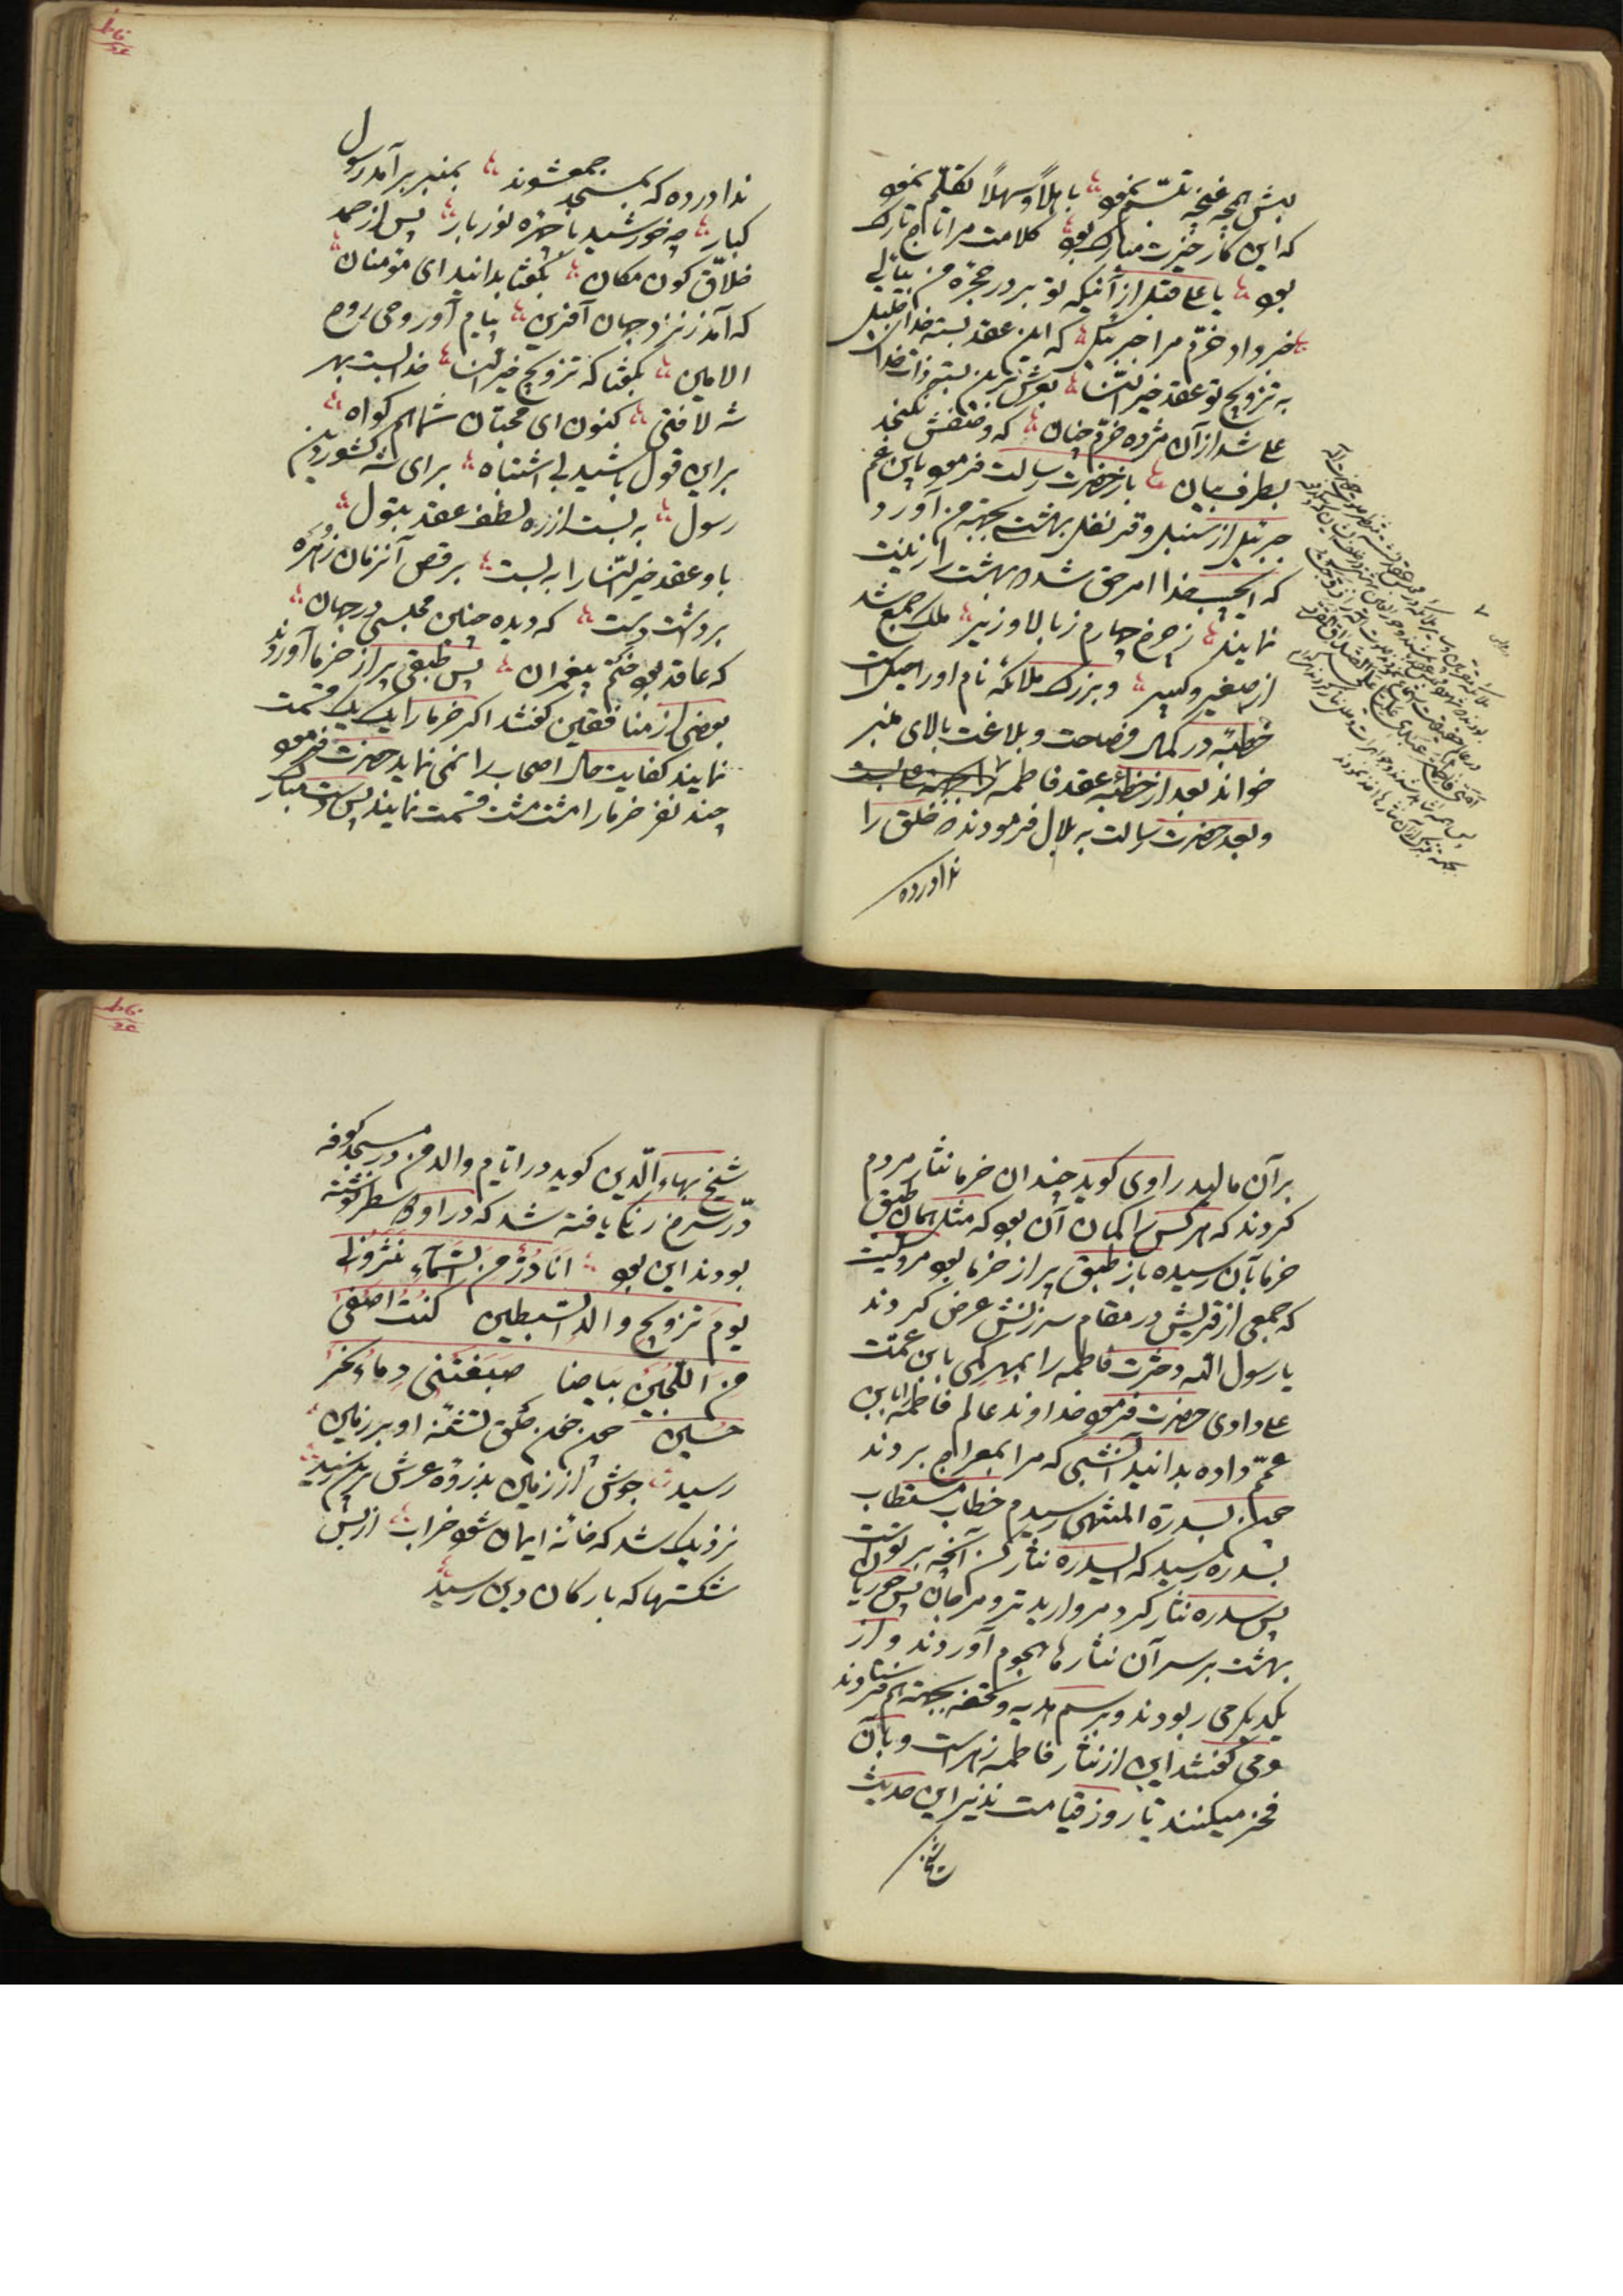 لبش همچه غنچه تبسّم نموو با هلاً و سهلاً تکلّم نموو
که این کار خیرت مبارک بوو کلامت مرا تاج تارک
بوو یا علی قبل از آنیکه تو بر در حجره من بیائی
خبر داد خرّم مرا جبرئیل که این عقد بسته خدای جلیل
به تزویج تو عقد خیر النّسا بعرش برین بسته ذات خدا
علی شد از آن مژده خرّم چنان که وصفش نکنجد
بطرف بیان باز حضرت رسالت فرموو یابن عم
جبرئیل از سنبل و قرنفل بهشت بجهته من آورد
که ایحبیب خدا امر حق شده بهشت را زینت
نمایند ز چرخ چهارم ز بالا و زیر ملک جمع شد
از صغیر و کبیر و بزرگ ملائکه نام او راحیل است
خطبهٔ در کمال فصاحت و بلاغت بالای منبر
خواند بعد از خطبه عقد فاطمه را بجهته علی بست
و بعد حضرت رسالت به بلال فرمودند خلق را
ندا درده
ندا درده که بمسجد جمع شوند بمنبر بر آمد رسول
کبار چه خورشید با چهره نور بار پس از حمد
خلاّق کون مکان بگفتا بدانید ای مؤمنان
که آمد ز نزد جهان آفرین پیام آور وحی روح
الامین بگفتا که تزویج خیر النسا خدا بست بهر
شه لافتی کنون ای محبّان شما هم کواه
براین قول باشید بی اشتباه برای شه کشور دین
رسول به بست از ره لطف عقد بتول
باو عقد خیر النّسا را به بست برقص آنزمان زُهره
برداشت دست که دیده چنین مجلسی در جهان
که عاقد بوو ختم پیغمبران پس طبقی پر از خرما آوردند
بعضی از منافقین کفتند اکر خرما را یک یک قسمت
نمایند کفایت حال اصحاب را نمی نماید حضرت فرموو
چند نفر خرما را مشت مشت قسمت نمایند پس دست مبارک
برآن مالید راوی کوید چندان خرما نثار مردم
کردند که هر کس را کمان آن بوو که مثل همان طبق
خرما بآن رسیده باز طبق پر از خرما بوو مرویست
که جمعی از قریش در مقام سرزنش عرض کردند
یا رسول اللّه دخترت فاطمه را بمهر کمی بابن عمّت
علی دادی حضرت فرموو خداوند عالم فاطمه را باین
عمّم داده بدانید آنشبی که مرا بمعراج بردند
چون بسدرة المنتهی رسیدم خطاب مستطاب
بسدره رسید که ایسدره نثار کن آنچه بر توست
پس سدره نثار کرد مروارید تر و مرجان پس حوریا
بهشت بر سر آن نثارها هجوم آوردند و از
یکدیکر می ربودند و برسم هدیه و تحفه بجهته هم فرستادند
و می کفتند این از نثار فاطمه زهراست و بآن
فخر میکنند تا روز قیامت نذیر این حدیث
شیخ بهاء الّدین کوید در ایّام والد من در مسجد کوفه
درّ سرخ رنگ یافته شد که در او دو سطر نوشته
بودند این بوو اَنَا دُرٌّ مِنَ السَّمآءِ نَثَروُنی
یوم تزویج والد السّبطین کنتُ اصفیٰ
من اللُّجَین بیاضا صَبَغَتنی دِماءُ نحر
حُسین چون خون حلق تشنهٔ او بر زمین
رسید جوش از زمین بذروهٔ عرش برین رسید
نزدیک شد که خانهٔ ایمان شوو خراب از بس
شکستها که بارکان دین رسید